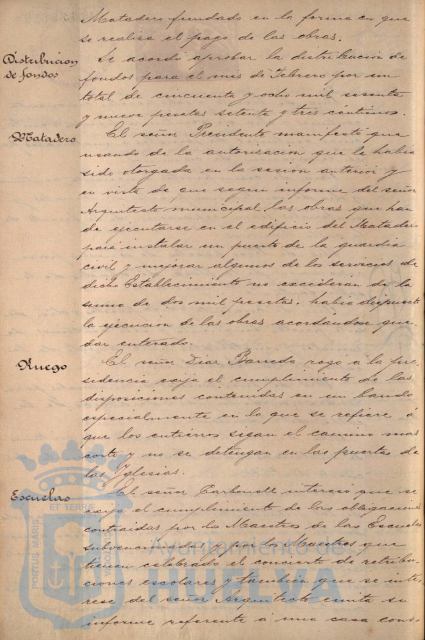 Matadero fundado en la forma en que
se realiza el pago de las obras.
Distribucion
de fondos
Se acordó aprobar la distribucion de
fondos para el mes de Febrero por un
total de cincuenta y ocho mil sesenta
y nueve pesetas setenta y tres céntimos.
Matadero
El señor Presidente manifestó que
usando de la autorizacion que le habia
sido otorgada en la sesion anterior y
en vista de que segun informe del señor
Arquitecto municipal las obras que han
de ejecutarse en el edificio del Matadero
para instalar un puesto de la guardia
civil y mejorar algunos de los servicios de
dicho Establecimiento no excederán de la
suma de dos mil pesetas, habia dispuesto
la ejecucion de las obras acordándose que-
dar enterado.
Ruego
El señor Diaz Barreda rogó a la pre-
sidencia exija el cumplimiento de las
disposiciones contenidas en un bando
especialmente en lo que se refiere á
que los entierros sigan el camino mas
corto y no se detengan en las puertas de
las Iglesias.
Escuelas
El señor Carbonell interesó que se
exija el cumplimiento de las obligaciones
contraidas por los Maestros de las Escuelas
subvencionadas y los Maestros que
tienen celebrado el concierto de retribu-
ciones escolares y tambien que se inte-
rese del señor Arquitecto emita su
informe referente á una casa cons-
PORTUS MARIS
ET TERRE
Ayuntamiento de
HUELVA